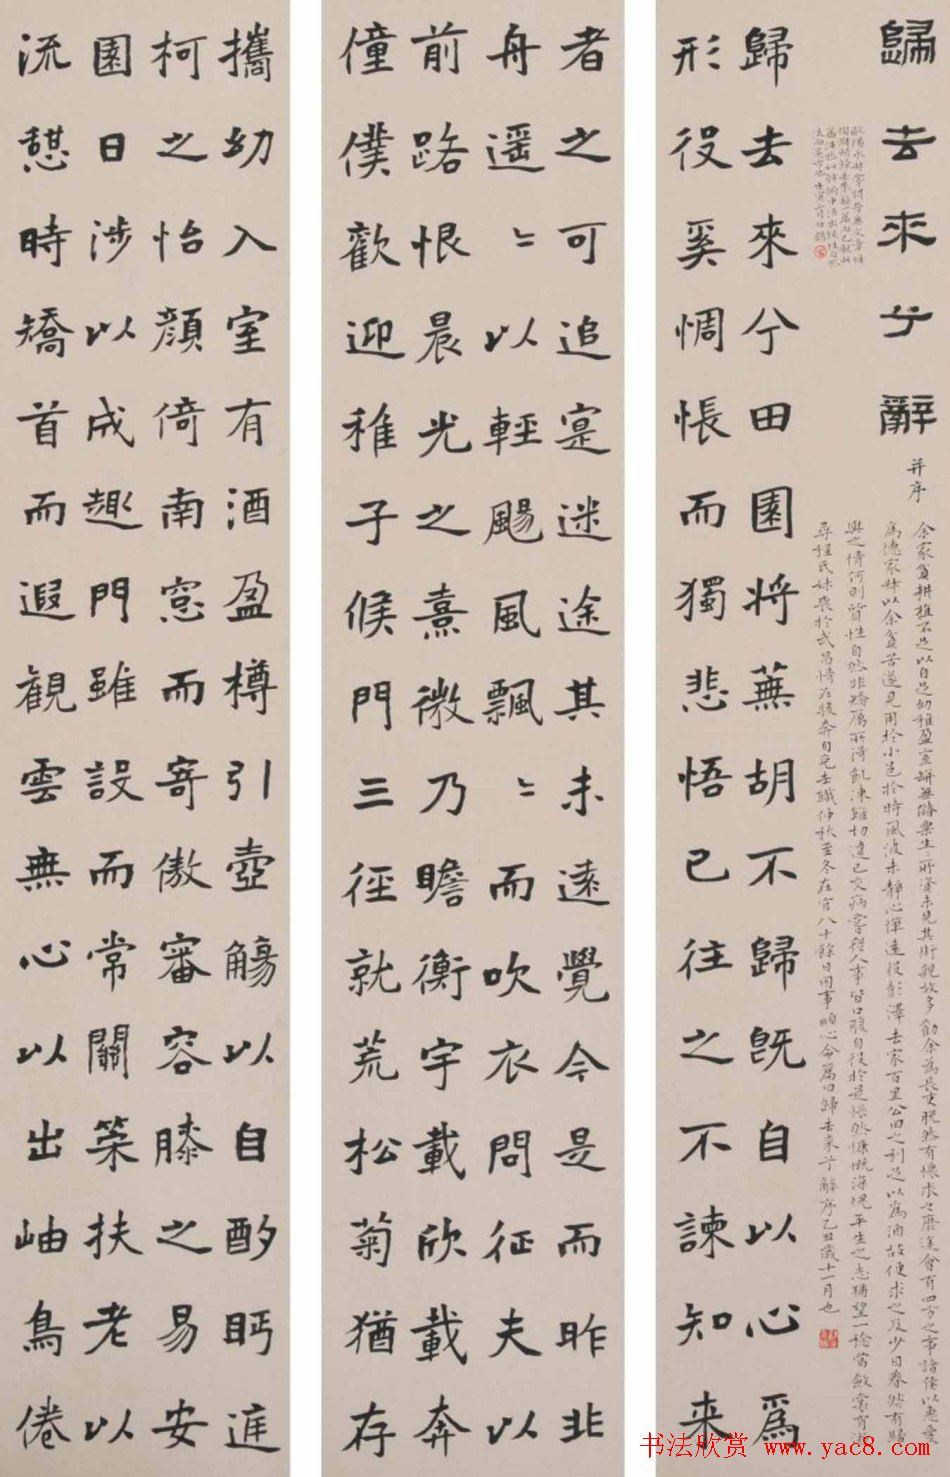 歸去來兮辭
并序
余家貧耕植不足以自足幼稚盈室缾無儲粟生〻所資未見其術親故多勸余為長吏脫然有懷求之靡途會有四方之事諸侯以惠愛
為德家叔以余貧苦遂見用於小邑於時風波未靜心憚遠役彭澤去家百里公田之利足以為酒故便求之及少日眷然有歸
與之情何則質性自然非矯厲所得飢凍雖切違己交病嘗從人事皆口腹自役於是悵然慷慨深愧平生之志猶望一稔當斂裳宵逝
尋程氏妹喪於武昌情在駿奔自免去職仲秋至冬在官八十餘日因事順心命篇曰歸去來兮辭序乙丑歲十一月也
歐陽永叔嘗謂晉無文章惟
歸去來兮田園將蕪胡不歸既自以心為
形役奚惆悵而獨悲悟已往之不諫知來
者之可追寔迷途其未遠覺今是而昨非
舟遥〻以輕颺風飄〻而吹衣問征夫以
前路恨晨光之熹微乃瞻衡宇載欣載奔
僮僕歡迎稚子候門三徑就荒松菊猶存
攜幼入室有酒盈樽引壺觴以自酌眄庭
柯之怡顏倚南窓而寄傲審容膝之易安
園日涉以成趣門雖設而常關策扶老以
流憩時矯首而遐觀雲無心以出岫鳥倦
书法欣赏 www.yac8.com